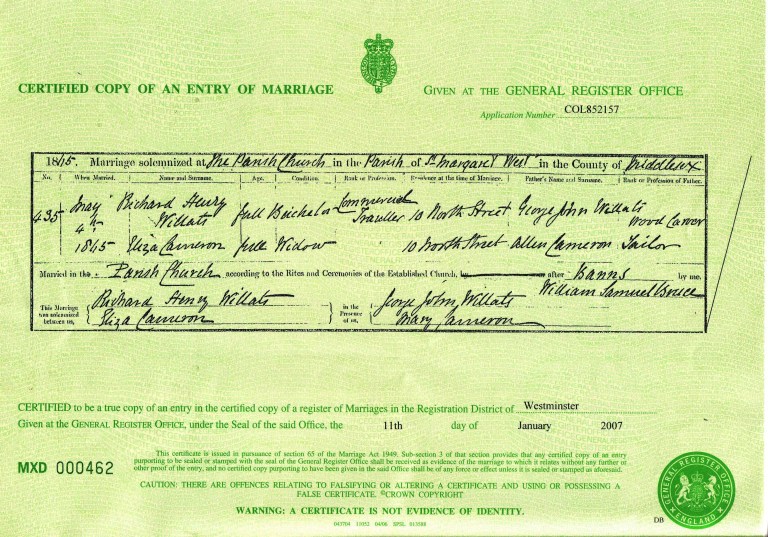 CERTIFIED COPY OF AN ENTRY OF MARRIAGE
GIVEN AT THE GENERAL REGISTER OFFICE
Application Number COL852157
1845. Marriage solemnized at The Parish Church in the Parish of St. Margaret West in the County of Middlesex
No. When Married. Name and Surname. Age. Condition. Rank or Profession. Residence at the time of Marriage. Father's Name and Surname. Rank or Profession of Father.
435 May 4th 1845 Richard Henry Willats full Bachelor Commercial Traveller 10 North Street George John Willats Wood Carver
Eliza Cameron full Widow 10 North Street Allen Cameron Tailor
Married in the Parish Church according to the Rites and Ceremonies of the Established Church, after Banns by me,
William Samuel Bruce
This Marriage was solemnized between us, Richard Henry Willats in the Presence of us, George John Willats
Eliza Cameron Mary Cameron
CERTIFIED to be a true copy of an entry in the certified copy of a register of Marriages in the Registration District of Westminster
Given at the GENERAL REGISTER OFFICE, under the Seal of the said Office, the 11th day of January 2007
MXD 000462
This certificate is issued in pursuance of section 65 of the Marriage Act 1949. Sub-section 3 of that section provides that any certified copy of an entry
purporting to be sealed or stamped with the seal of the General Register Office shall be received as evidence of the marriage to which it relates without any further or
other proof of the entry, and no certified copy purporting to have been given in the said Office shall be of any force or effect unless it is sealed or stamped as aforesaid.
CAUTION: THERE ARE OFFENCES RELATING TO FALSIFYING OR ALTERING A CERTIFICATE AND USING OR POSSESSING A
FALSE CERTIFICATE. ©CROWN COPYRIGHT
WARNING: A CERTIFICATE IS NOT EVIDENCE OF IDENTITY.
GENERAL REGISTER OFFICE
ENGLAND
DB